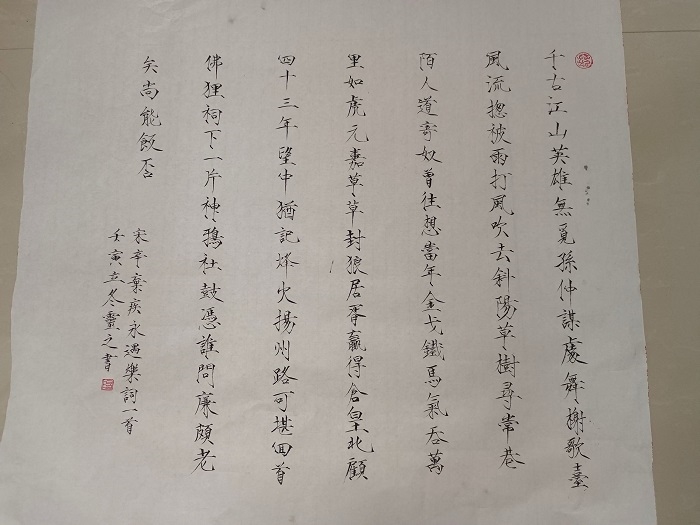 千古江山英雄無覓孫仲謀處舞榭歌臺
風流摠被雨打風吹去斜陽草樹尋常巷
陌人道寄奴曾住想當年金戈鐵馬氣吞萬
里如虎元嘉草草封狼居胥贏得倉皇北顧
四十三年望中猶記烽火揚州路可堪回首
佛狸祠下一片神鴉社鼓憑誰問廉頗老
矣尚能飯否
宋辛棄疾永遇樂詞一首
壬寅立冬靈之書